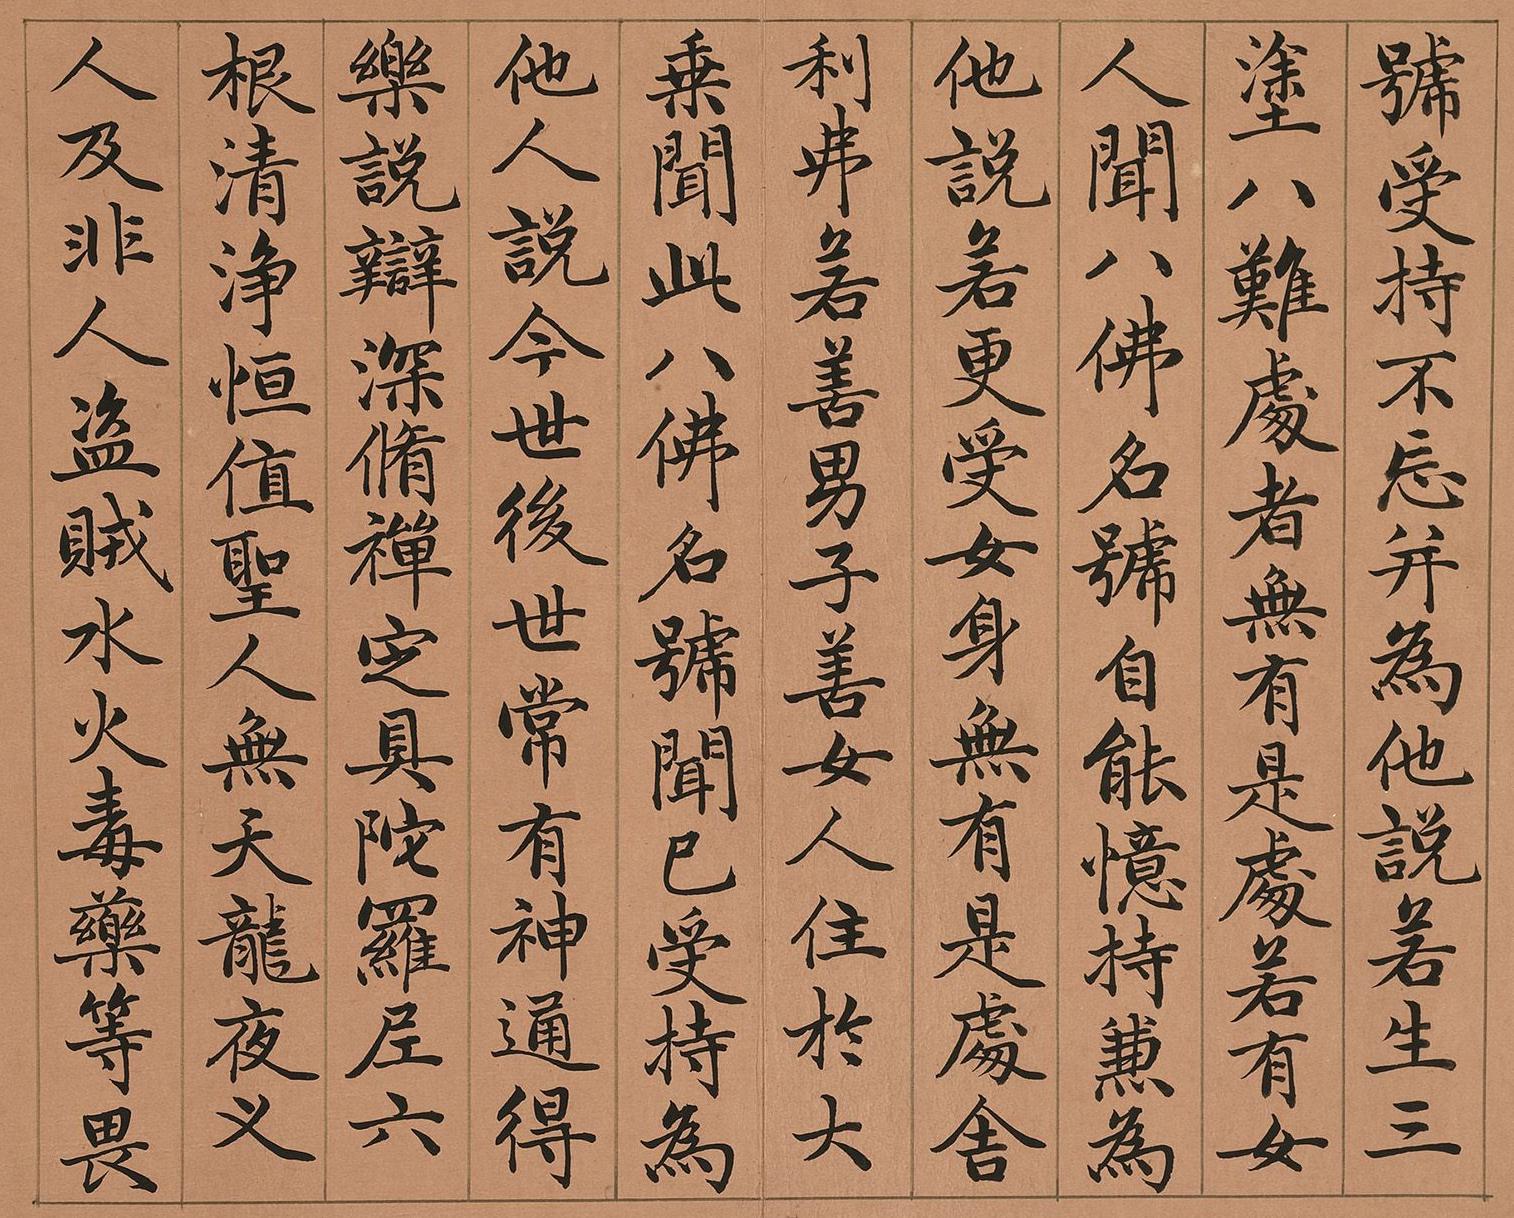 號受持不忘并為他說若生三
塗八難處者無有是處若有女
人聞八佛名號自能憶持兼為
他說若更受女身無有是處舍
利弗若善男子善女人住於大
乗聞此八佛名號聞已受持為
他人說今世後世常有神通得
樂說辯深脩禪定具陀羅尼六
根清淨恒值聖人無天龍夜义
人及非人盜賊水火毒藥等畏